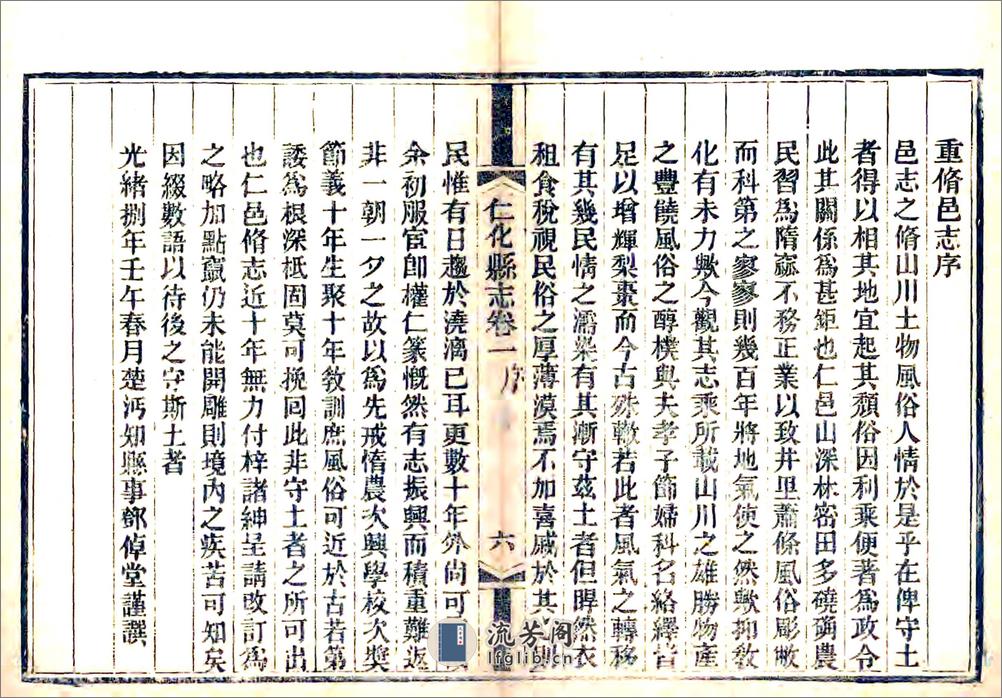 重脩邑志序
邑志之脩山川土物風俗人情於是乎在俾守土
者得以相其地宜起其頽俗因利乘便著為政令
此其關係為甚鉅也仁邑山深林密田多磽确農
民習為隋窳不務正業以致井里蕭條風俗彫敝
而科第之寥寥則幾百年將地氣使之然歟抑敎
化有未力歟今觀其志乘所載山川之雄勝物產
之豐饒風俗之醇樸與夫孝子節婦科名絡繹皆
足以增輝梨棗而今古殊轍若此者風氣之轉移
有其幾民情之濡染有其漸守茲土者但睅然衣
租食稅視民俗之厚薄漠焉不加喜戚於其
仁化縣志卷一 序 六
民惟有日趨於澆漓已耳更數十年外尚可
余初服官卽權仁篆慨然有志振興而積重難返
非一朝一夕之故以為先戒惰農次興學校次奬
節義十年生聚十年敎訓庶風俗可近於古若第
諉為根深柢固莫可挽回此非守土者之所可出
也仁邑脩志近十年無力付梓諸紳呈請改訂為
之略加點竄仍未能開雕則境內之疾苦可知矣
因綴數語以待後之守斯土者
光緒捌年壬午春月楚沔知縣事鄧倬堂謹譔
流芳閣
lfglib.cn